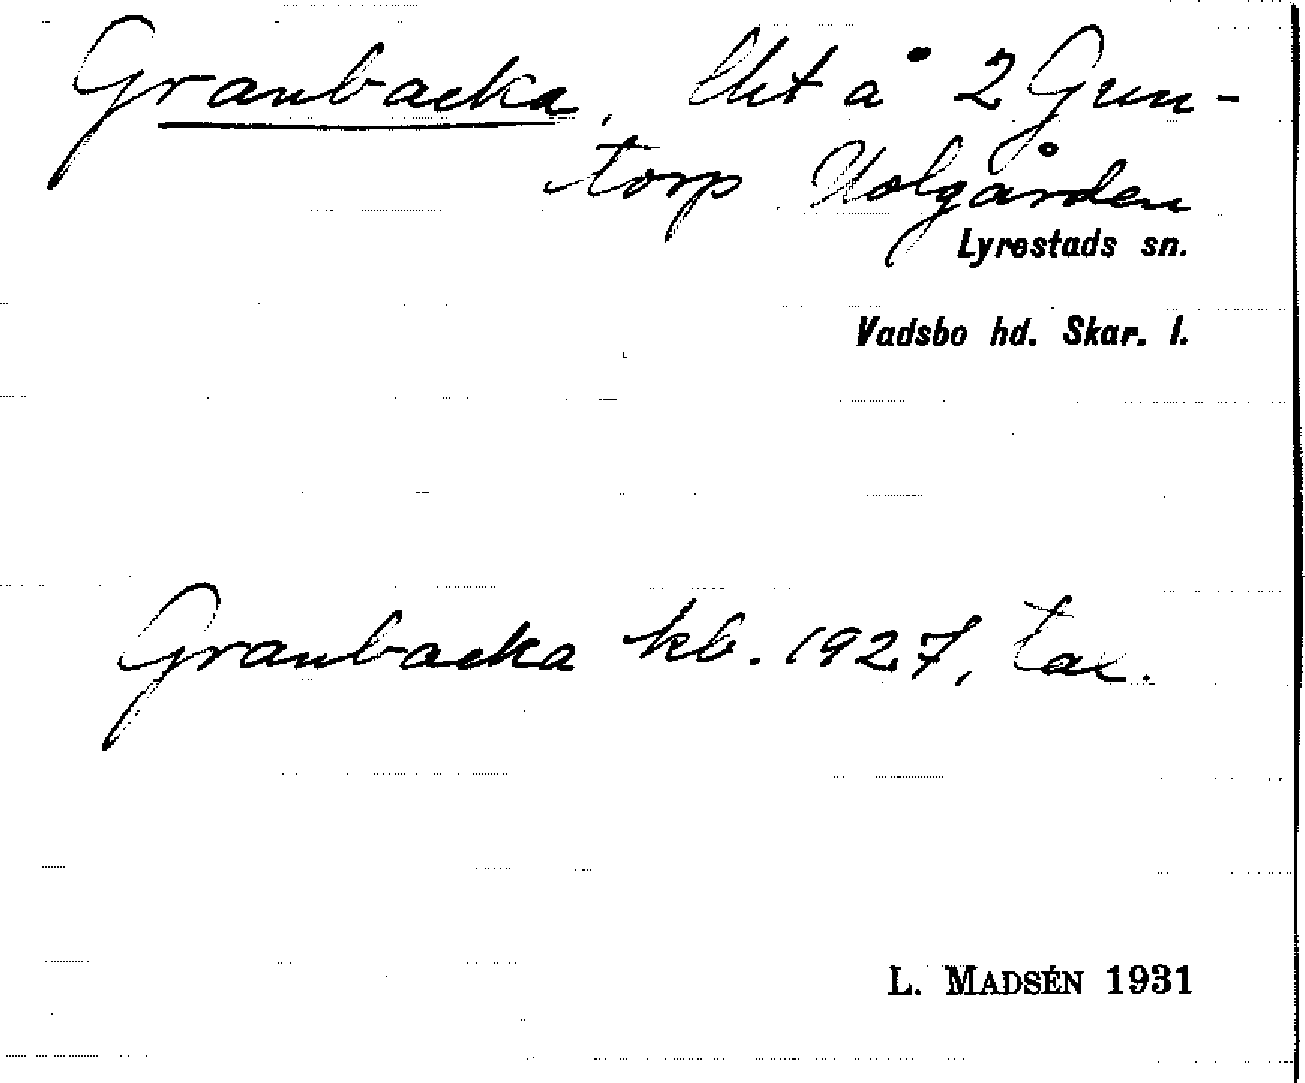 Granbacka, lht å 2 Gun-
torp Holgården
Lyrestads sn.
Vadsbo hd. Skar. l.
Granbacka kb. 1927, tax.
L. MADSÉN 1931